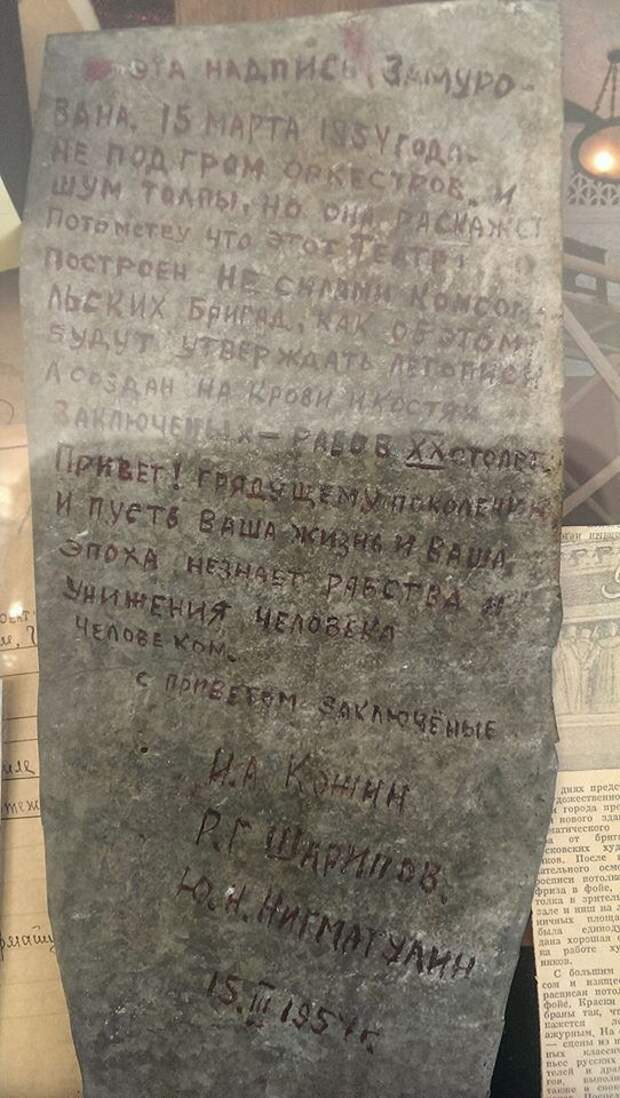 ЭТА НАДПИСЬ, ЗАМУРО-
ВАНА. 15 МАРТА 1954 ГОДА.
НЕ ПОД ГРОМ ОРКЕСТРОВ. И
ШУМ ТОЛПЫ. НО ОНА РАСКАЖЕТ
ПОТОМСТВУ ЧТО ЭТОТ ТЕАТР
ПОСТРОЕН НЕ СИЛАМИ КОМСОМ-
ЛЬСКИХ БРИГАД, КАК ОБ ЭТОМ
БУДУТ УТВЕРЖДАТЬ ЛЕТОПИСИ
А СОЗДАН НА КРОВИ И КОСТЯХ
ЗАКЛЮЧЕНЫХ — РАБОВ XX СТОЛЕТ.
ПРИВЕТ! ГРЯДУЩЕМУ ПОКОЛЕНИЮ
И ПУСТЬ ВАША ЖИЗНЬ И ВАША
ЭПОХА НЕЗНАЕТ РАБСТВА И
УНИЖЕНИЯ ЧЕЛОВЕКА
ЧЕЛОВЕКОМ.
С ПРИВЕТОМ ЗАКЛЮЧЁНЫЕ
И.А КОЖИН
Р.Г ШАРИПОВ.
Ю.Н. НИГМАТУЛИН
15.III 1954 г.
днях предс
дожественно
города пре
нового зда
матического
а от брига
сковских худ
ков. После
ательного осмо
росписи потолк
фриза в фойе,
толка в зрител
зале и ниш на л
ничных площа
была единоду
дана хорошая
ка работе ху
ников.
С большим
сом и изяще
расписан пото
фойе. Краски
браны так, чт
кажется ле
ажурным. На
— сцены из
ных классич
пьес русских
телей и дра
гов, выполн